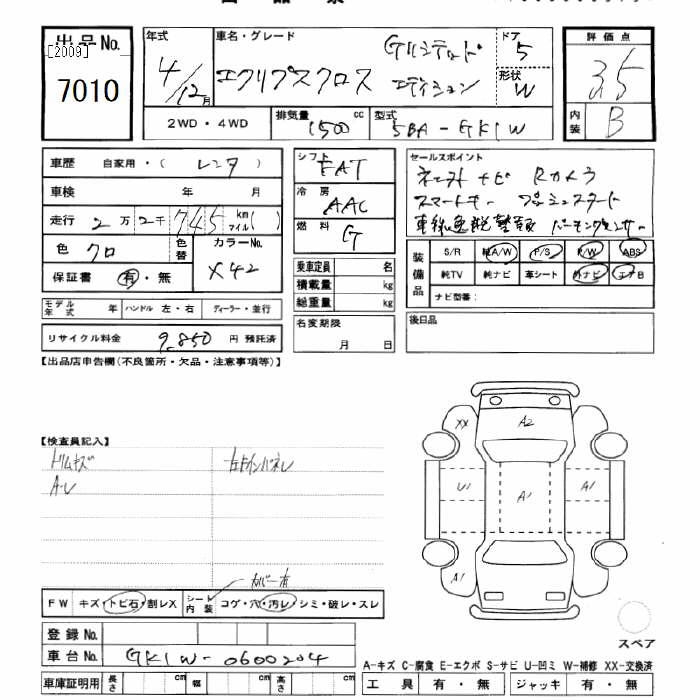 出品No.
[2009]
7010
年式
4/12月
車名・グレード
エクリプスクロス
Gリミテッド
エディション
ドア
5
形状
W
評価点
3.5
内装
B
2WD・4WD
排気量
1500 cc
型式
5BA-GK1W
車歴 自家用・(レンタ)
車検 年 月
走行 2万2千745 km マイル( )
色 クロ
色替
カラーNo.
X42
保証書 有・無
モデル年式 年 ハンドル 左・右 ディーラー・並行
リサイクル料金 9,850 円 預託済
シフト
FAT
冷房
AAC
燃料
G
乗車定員 名
積載量 kg
総重量 kg
名変期限
月 日
セールスポイント
ナビ Rカメラ
スマートキー プッシュスタート
車線逸脱警報 パーキングセンサー
装備品
S/R 純A/W P/S P/W ABS
純TV 純ナビ 革シート 外ナビ エアB
ナビ型番:
後日品
【出品店申告欄(不良箇所・欠品・注意事項等)】
【検査員記入】
トリムキズ
A-U
カバー有
FW キズ・トビ石・割レX
シート内装 コゲ・穴・汚レ・シミ・破レ・スレ
XX
A2
U1
A1
A1
A1
スペア
登録No.
車台No. GK1W-0600204
車庫証明用 長さ cm 幅 cm 高さ cm
A-キズ C-腐食 E-エクボ S-サビ U-凹ミ W-補修 XX-交換済
工具 有・無 ジャッキ 有・無